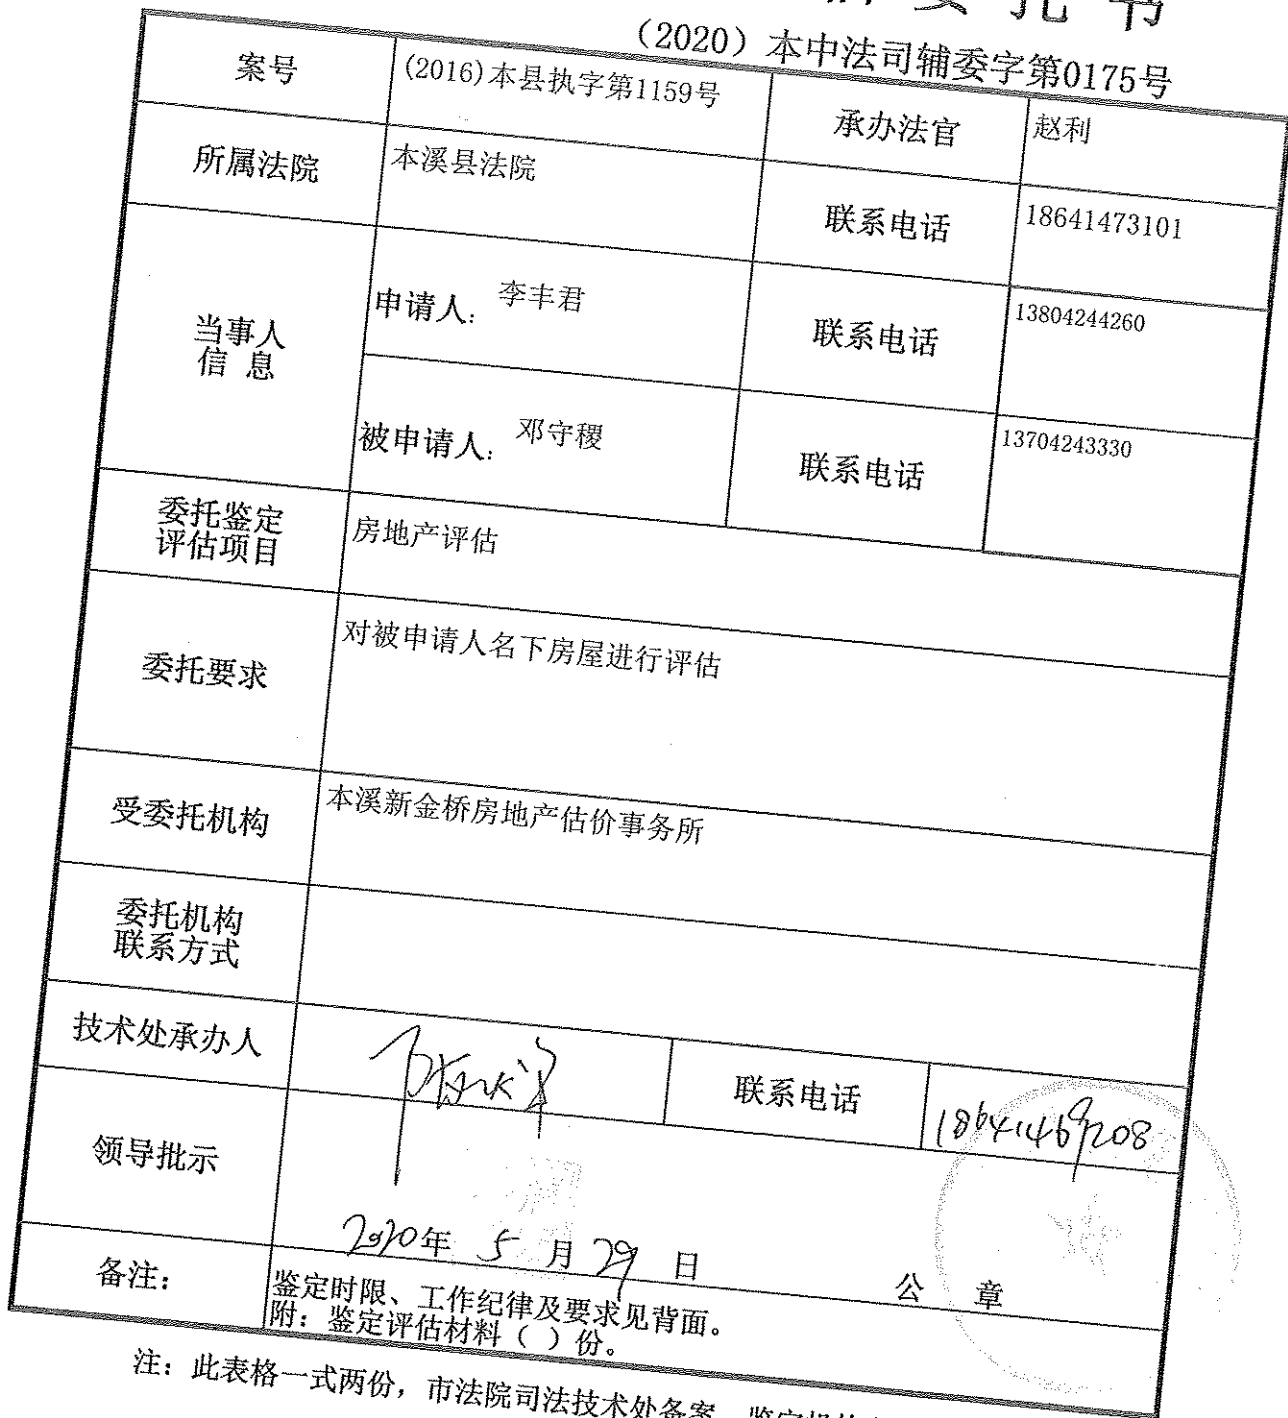 委托书
（2020）本中法司辅委字第0175号
案号 (2016)本县执字第1159号 承办法官 赵利
所属法院 本溪县法院 联系电话 18641473101
当事人
信 息
申请人: 李丰君 联系电话 13804244260
被申请人: 邓守稷 联系电话 13704243330
委托鉴定
评估项目
房地产评估
委托要求 对被申请人名下房屋进行评估
受委托机构 本溪新金桥房地产估价事务所
委托机构
联系方式
技术处承办人 联系电话 18641469208
领导批示
2020年 5 月 29 日 公 章
备注: 鉴定时限、工作纪律及要求见背面。
附: 鉴定评估材料（ ）份。
注: 此表格一式两份，市法院司法技术处备案